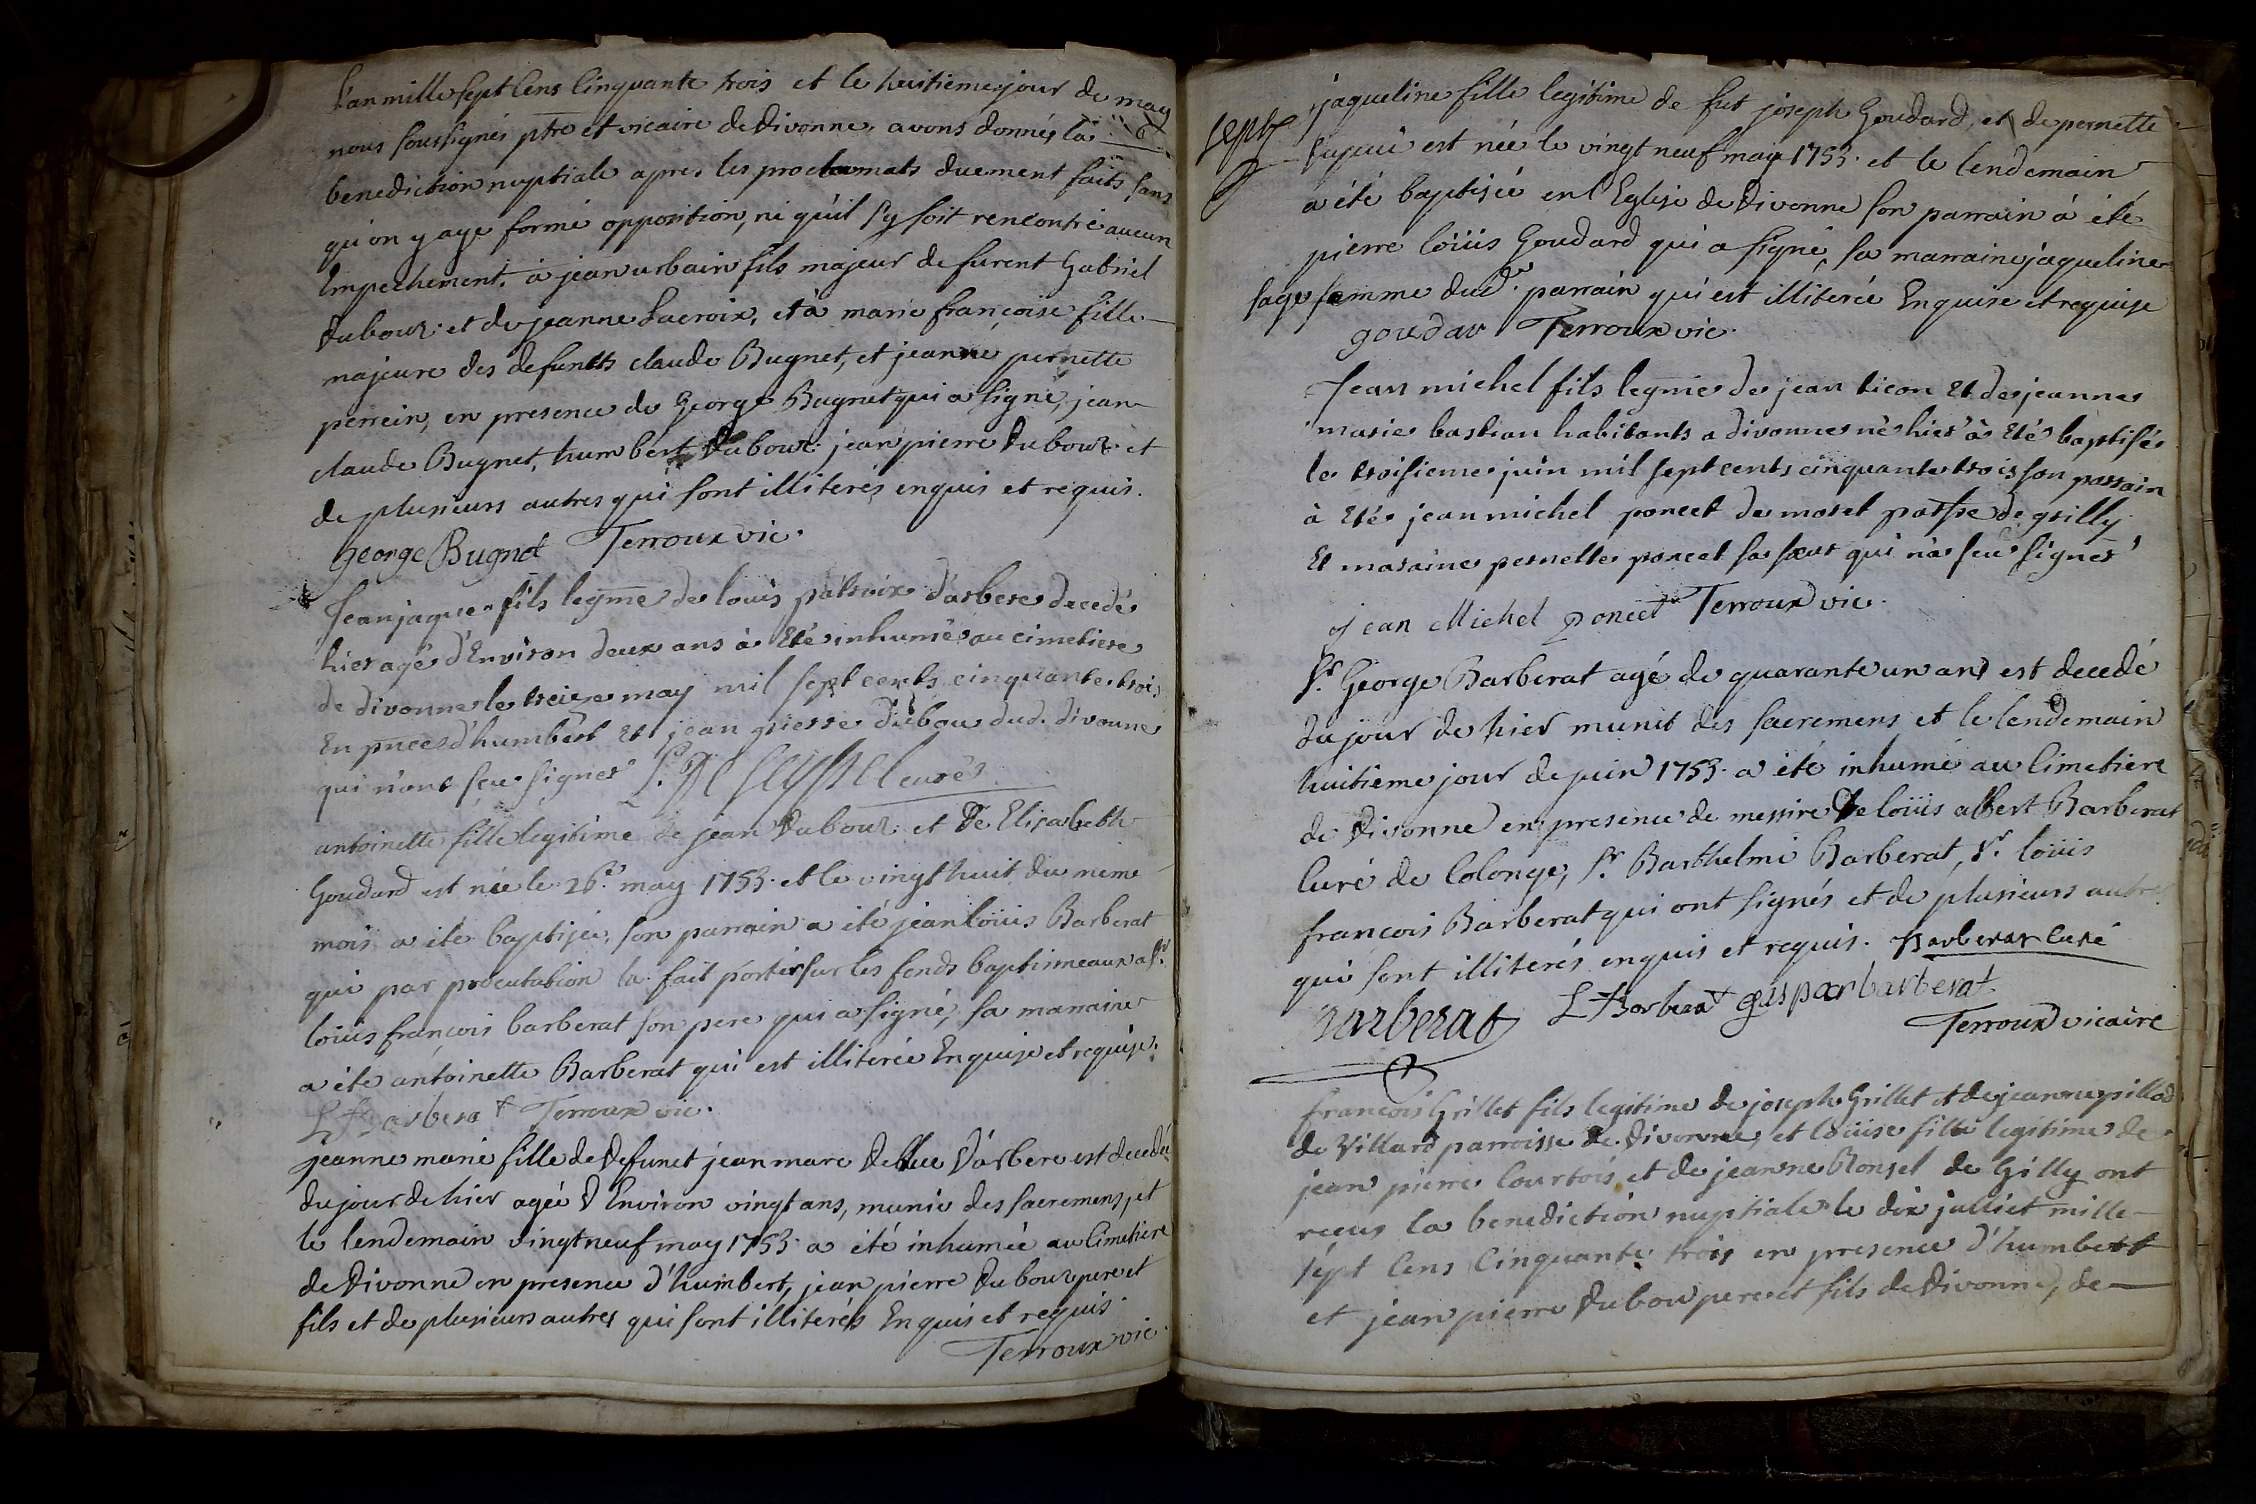 L'an mille sept Cens Cinquante trois et le huitieme jour de may
nous soussignés ptre et vicaire de Divonne, avons donnés la
benediction nuptiale apres les proclamats duement faits sans
qu'on y aye formé opposition, ni qu'il s'y soit rencontré aucun
Empechement. à jean urbain fils majeur de furent Gabriel
Dubouz et de jeanne Lacroix, et à marie françoise fille
majeure des defuncts claude Bugnet, et jeanne pernette
perrein, en presence de George Bugnet qui a signé, jean
claude Bugnet, humbert Dubouz jean pierre Dubouz et
de plusieurs autres qui sont illiterés enquis et requis.
George Bugnet Terroux vic.
Jean jaque fils legme de louis patroix d'arbere decedé
hier agé d'Environ deux ans à Eté inhumé au cimetiere
de divonne le treize may mil sept cents cinquante trois
En pnce d'humbert Et jean pierre dubou dud. divonne
qui n'ont sçeu signer curé
antoinette fille legitime de jean Dubouz et de Elisabeth
Goudard est née le 26e may 1753. et le vingt huit du meme
mois a été baptisée, son parrain a été jean loüis Barberat
qui par procutation la fait porter sur les fonds baptismeaux a Sr.
loüis françois barberat son pere qui a signé, sa marraine
a été antoinette Barberat qui est illiterée Enquise et requise.
L F Barberat Terroux vic.
jeanne marie fille de Defunct jean marc Deluc D'arbere est decedée
du jour de hier agée d'Environ vingt ans, munie des sacremens, et
le lendemain vingt neuf may 1753. a été inhumée au Cimetiere
de Divonne en presence d'humbert, jean pierre Dubouz pere et
fils et de plusieurs autres qui sont illiterés Enquis et requis.
Terroux vic.
jaqueline fille legitime de fut joseph Goudard, et de pernette
est née le vingt neuf may 1753. et le lendemain
a été baptisée en l'Eglise de Divonne son parrain à été
pierre loüis Goudard qui a signé, sa marraine jaqueline
sage femme dud. parrain qui est illiterée Enquise et requise
goudar Terroux vic.
Jean michel fils legme de jean ticon Et de jeanne
marie bastian habitants a divonne né hier à Eté baptisé
le troisieme juin mil sept cents cinquante trois son parrain
à Eté jean michel poncet de moret parsse de grilly
Et maraine pernette poncet sa sœur qui n'a sçeu signer
jean Michel poncet Terroux vic.
Sr. George Barberat agé de quarante un ans est decedé
du jour de hier munit des sacremens et le lendemain
huitieme jour de juin 1753. a été inhumé au Cimetiere
de Divonne en presence de messire loüis albert Barberat
Curé de Colonge, Sr. Barthelmi Barberat, Sr. loüis
francois Barberat qui ont signés et de plusieurs autres
qui sont illiterés enquis et requis. Barberat Curé
Barberat L F Barberat gaspar barberat
Terroux vicaire
francois Grillet fils legitime de joseph Grillet et de jeanne pillod
de Villard parroisse de Divonne, et loüise fille legitime de
jean pierre Courtois, et de jeanne Ronzel de Gilly ont
receus la benediction nuptiale le dix julliet mille
sept Cens Cinquante trois en presence d'humbert
et jean pierre Dubou pere et fils de Divonne, de